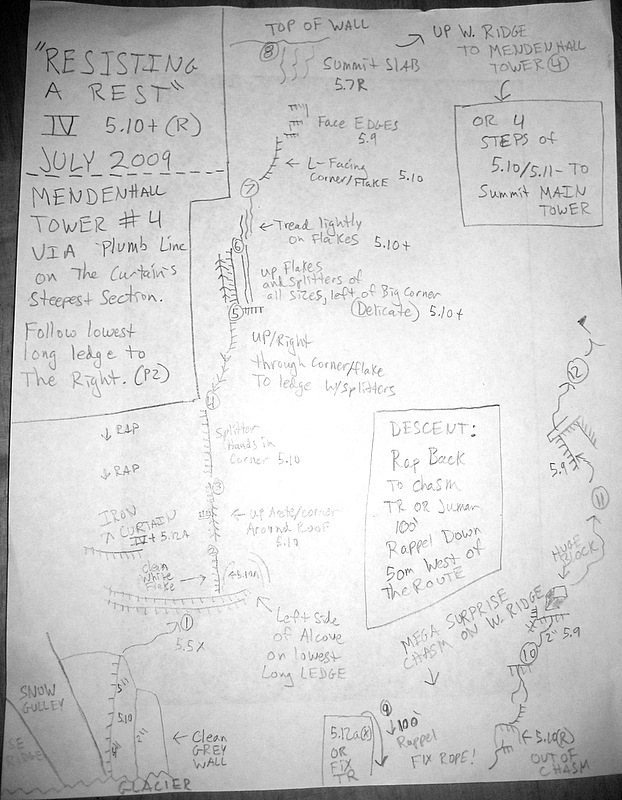 "RESISTING
A REST"
IV 5.10+ (R)
JULY 2009
MENDENHALL
TOWER #4
VIA Plumb Line
on The Curtain's
Steepest Section.
Follow lowest
long ledge to
The Right. (P2)
TOP OF WALL
8
Summit SLAB
5.7R
UP W. RIDGE
TO MENDENHALL
TOWER 4
OR 4
STEPS of
5.10/5.11- TO
Summit MAIN
TOWER
Face EDGES
5.9
L-Facing
Corner/FLAKE 5.10
7
Tread lightly
on Flakes 5.10+
6
up Flakes
and splitters of
all sizes, left of Big Corner
(Delicate) 5.10+
5
UP/Right
through corner/flake
To ledge w/splitters
4
Splitter
Hands in
Corner 5.10
3
up Arete/corner
Around Roof
5.10
2
RAP
RAP
IRON
CURTAIN
IV+ 5.12A
Clean
White
Flake
5.10A
Left Side
of Alcove
on lowest
Long LEDGE
1
5.5X
SNOW
GULLEY
5"
5.10
2"
Clean
GREY
WALL
GLACIER
DESCENT:
Rap Back
To Chasm
TR OR Jumar
100'
Rappel Down
50m West of
the ROUTE
MEGA SURPRISE
CHASM ON W. RIDGE
9
100'
Rappel
FIX ROPE!
5.12a(X)
OR
FIX
TR
5.10(R)
OUT OF
CHASM
10
2" 5.9
HUGE BLOCK
11
5.9
12